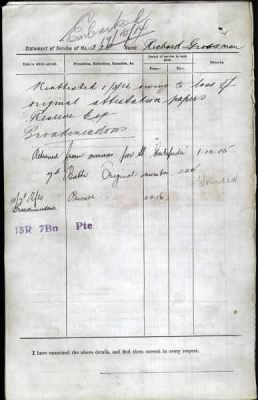 Embarked
17/10/16
Statement of Service of No. Name Richard Grossman
Unit in which served. Promotions, Reductions, Casualties, &c. Period of Service in each Rank. Remarks.
From— To—
Reattested owing to loss of
original attestation papers
Reserve Coy
Broadmeadows
Returned from overseas for 1-10-15
7th Battn Original number 226
Wounded
Broadmeadows Private
15R 7Bn Pte
I have examined the above details, and find them correct in every respect.